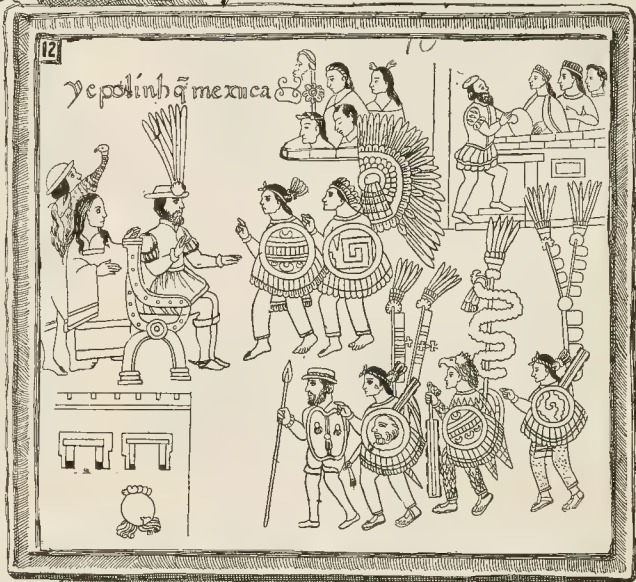 12
yepoliuhq̃ mexuca